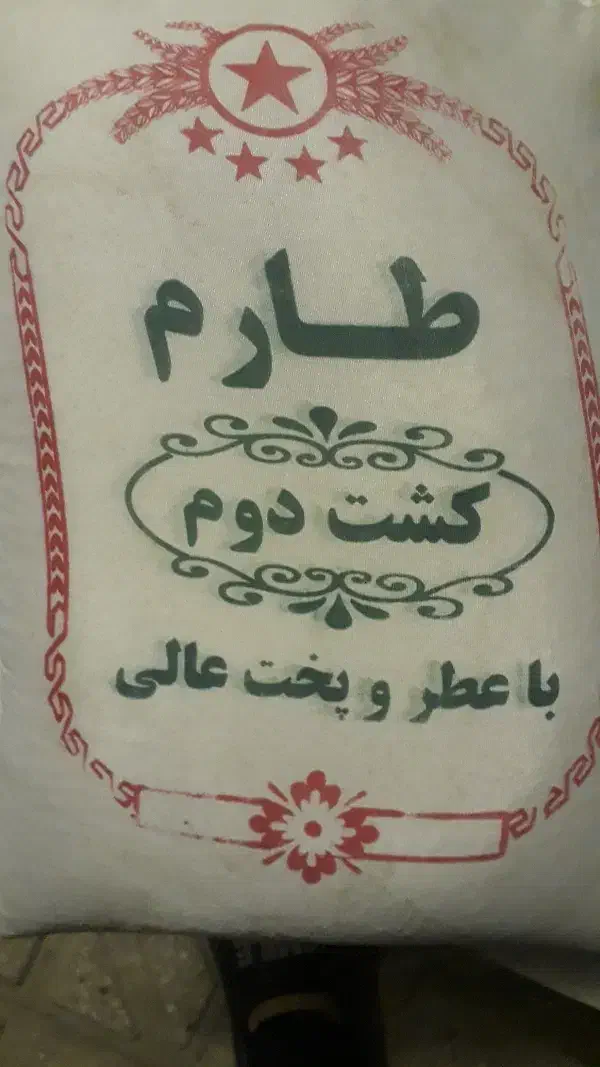 طارم
کشت دوم
با عطر و پخت عالی